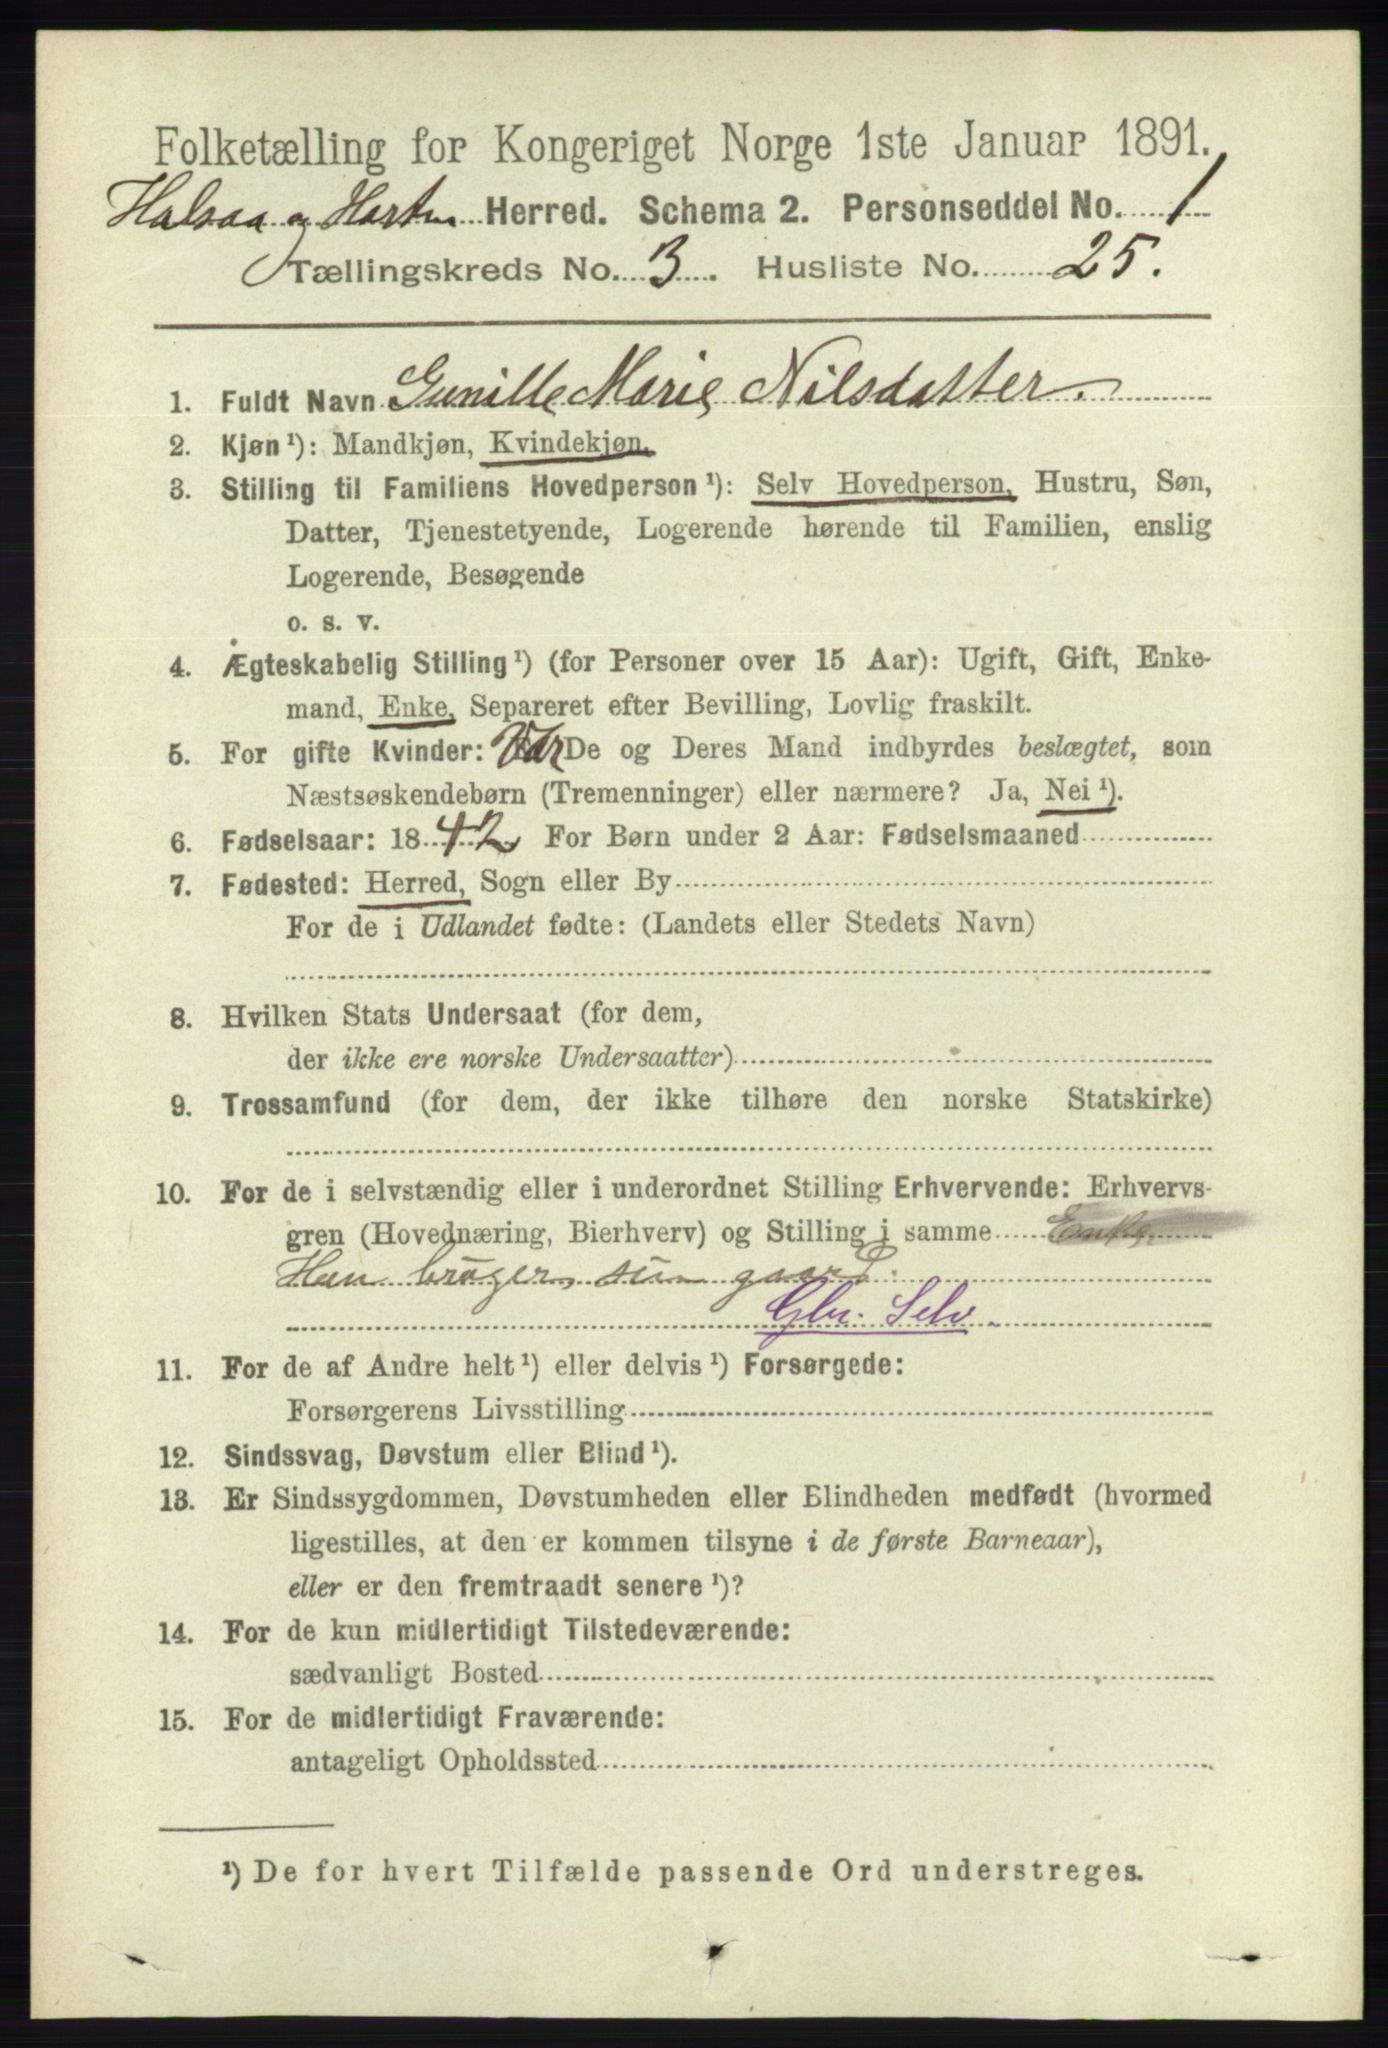 Folketælling for Kongeriget Norge 1ste Januar 1891.
Halsaa og Hartm Herred. Schema 2. Personseddel No. 1
Tællingskreds No. 3. Husliste No. 25.
1. Fuldt Navn Gunille Marie Nilsdatter.
2. Kjøn ¹): Mandkjøn, Kvindekjøn.
3. Stilling til Familiens Hovedperson ¹): Selv Hovedperson, Hustru, Søn,
Datter, Tjenestetyende, Logerende hørende til Familien, enslig
Logerende, Besøgende
o. s. v.
4. Ægteskabelig Stilling ¹) (for Personer over 15 Aar): Ugift, Gift, Enke-
mand, Enke, Separeret efter Bevilling, Lovlig fraskilt.
5. For gifte Kvinder: Var De og Deres Mand indbyrdes beslægtet, som
Næstsøskendebørn (Tremenninger) eller nærmere? Ja, Nei ¹).
6. Fødselsaar: 1842 For Børn under 2 Aar: Fødselsmaaned
7. Fødested: Herred, Sogn eller By
For de i Udlandet fødte: (Landets eller Stedets Navn)
8. Hvilken Stats Undersaat (for dem,
der ikke ere norske Undersaatter)
9. Trossamfund (for dem, der ikke tilhøre den norske Statskirke)
10. For de i selvstændig eller i underordnet Stilling Erhvervende: Erhvervs-
gren (Hovednæring, Bierhverv) og Stilling i samme Enke
Hun bruger sin gaard.
Gbr. Selv.
11. For de af Andre helt ¹) eller delvis ¹) Forsørgede:
Forsørgerens Livsstilling
12. Sindssvag, Døvstum eller Blind ¹).
13. Er Sindssygdommen, Døvstumheden eller Blindheden medfødt (hvormed
ligestilles, at den er kommen tilsyne i de første Barneaar),
eller er den fremtraadt senere ¹)?
14. For de kun midlertidigt Tilstedeværende:
sædvanligt Bosted
15. For de midlertidigt Fraværende:
antageligt Opholdssted
¹) De for hvert Tilfælde passende Ord understreges.